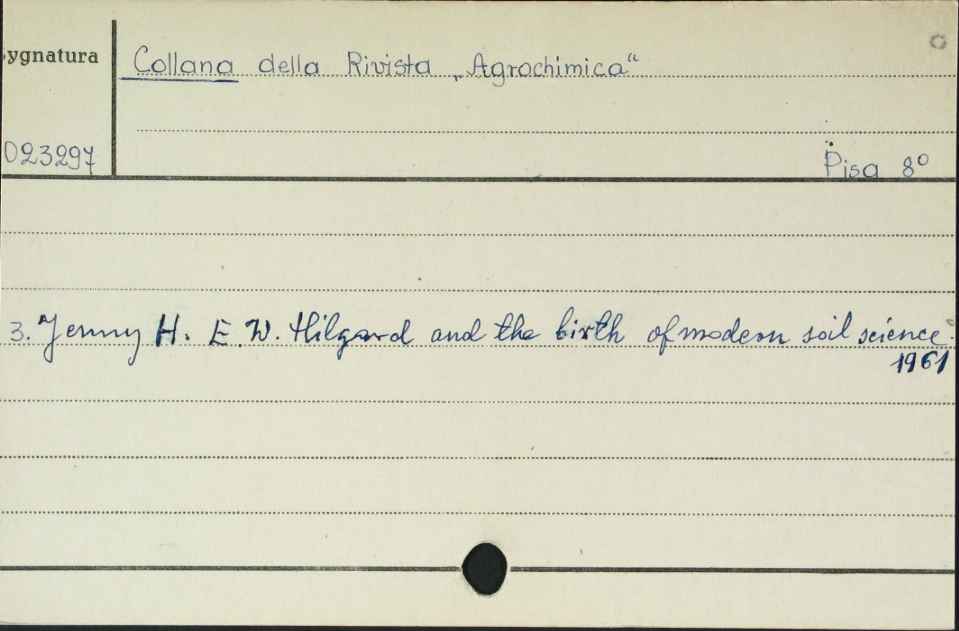 Sygnatura
Collana della Rivista „Agrochimica“
023297
Pisa 8°
3. Jenny H. E. W. Hilgard and the birth of modern soil science.
1961